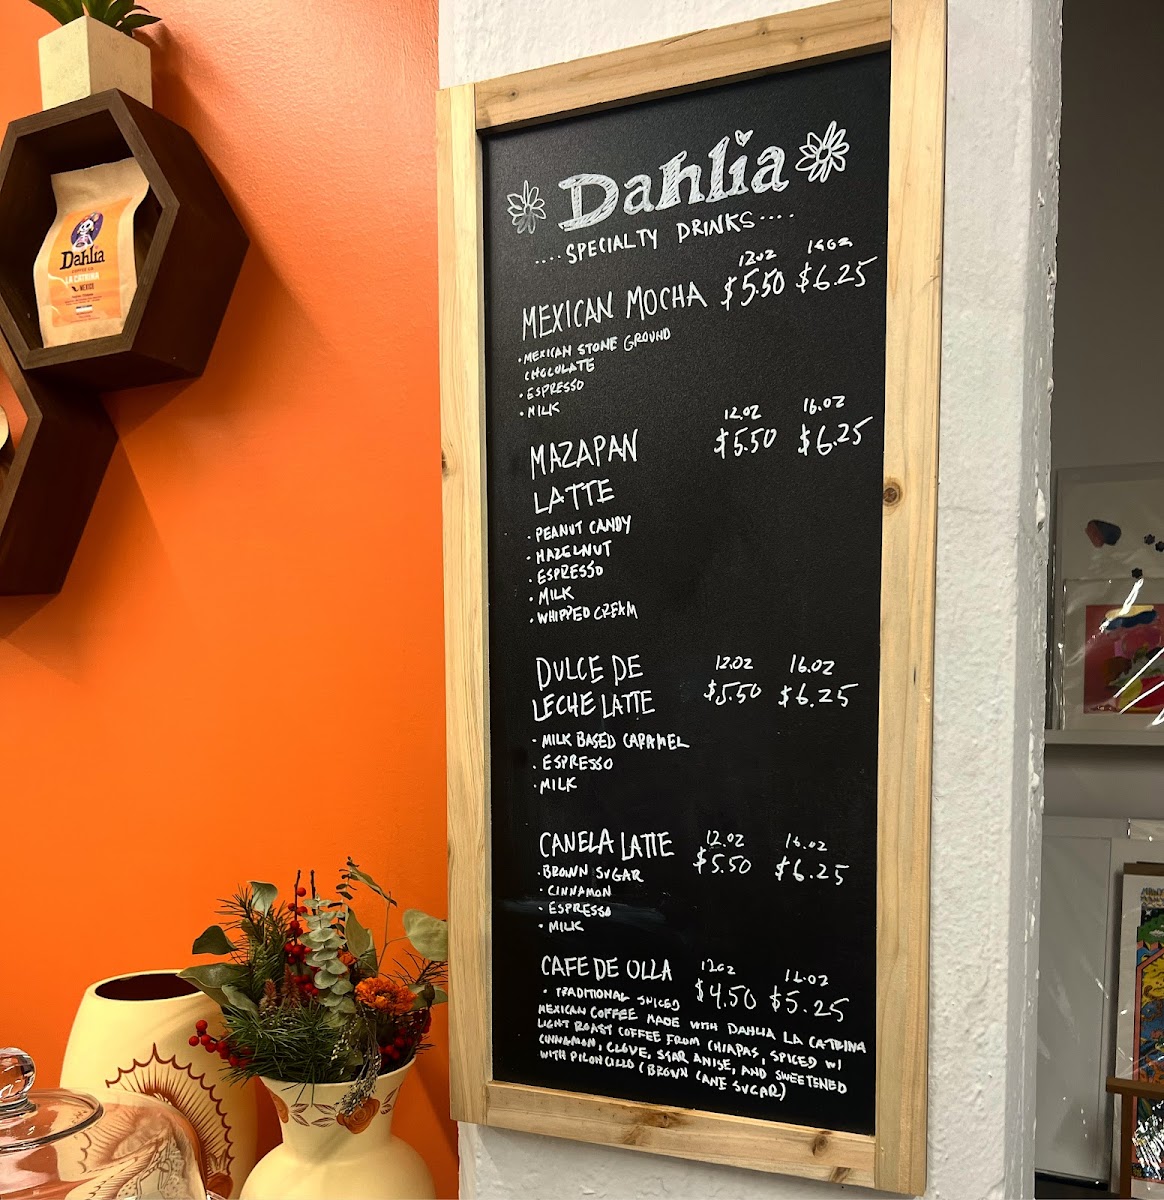 Dahlia
COFFEE CO.
LA CATRINA
MEXICO
Dahlia
....SPECIALTY DRINKS....
12oz 16oz
MEXICAN MOCHA $5.50 $6.25
• MEXICAN STONE GROUND
CHOCOLATE
• ESPRESSO
• MILK
12.OZ 16.OZ
MAZAPAN $5.50 $6.25
LATTE
• PEANUT CANDY
• HAZELNUT
• ESPRESSO
• MILK
• WHIPPED CREAM
DULCE DE 12.OZ 16.OZ
LECHE LATTE $5.50 $6.25
• MILK BASED CARAMEL
• ESPRESSO
• MILK
12.OZ 16.OZ
CANELA LATTE $5.50 $6.25
• BROWN SUGAR
• CINNAMON
• ESPRESSO
• MILK
12oz 16.OZ
CAFE DE OLLA $4.50 $5.25
• TRADITIONAL SPICED
MEXICAN COFFEE MADE WITH DAHLIA LA CATRINA
LIGHT ROAST COFFEE FROM CHIAPAS, SPICED W/
CINNAMON, CLOVE, STAR ANISE, AND SWEETENED
WITH PILONCILLO (BROWN CANE SUGAR)